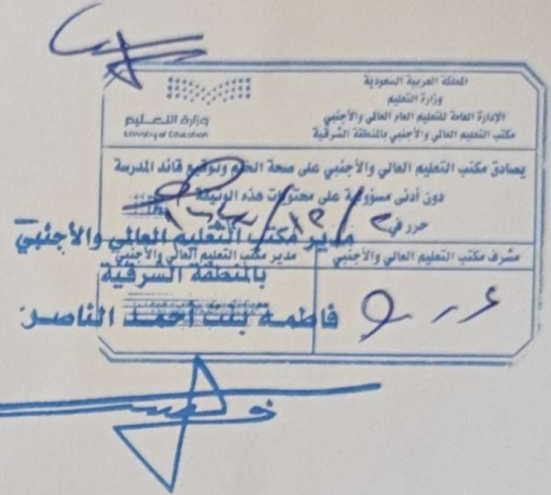 المملكة العربية السعودية
وزارة التعليم
الإدارة العامة للتعليم العام العالي والأجنبي
مكتب التعليم العالي والأجنبي بالمنطقة الشرقية
وزارة التعليم
Ministry of Education
يصادق مكتب التعليم العالي والأجنبي على صحة الختم وتوقيع قائد المدرسة
دون أدنى مسؤولية على محتويات هذه الوثيقة
حرر في
مشرف مكتب التعليم العالي والأجنبي
مدير مكتب التعليم العالي والأجنبي
مدير مكتب التعليم العالي والأجنبي
بالمنطقة الشرقية
فاطمة بنت أحمد الناصر